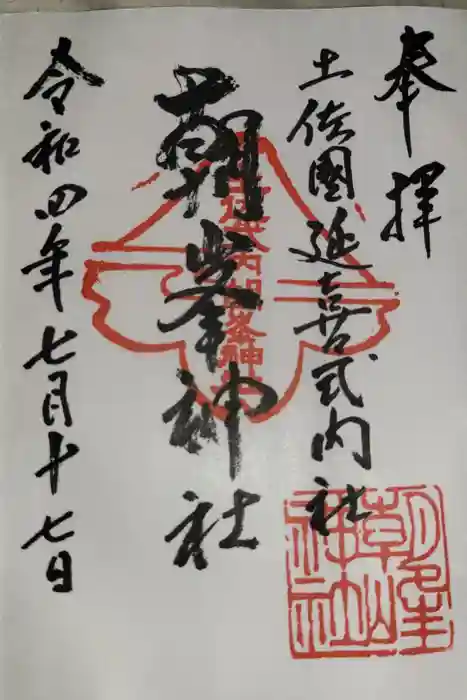 奉拝
土佐國延喜式内社
朝峯神社
令和四年七月十七日